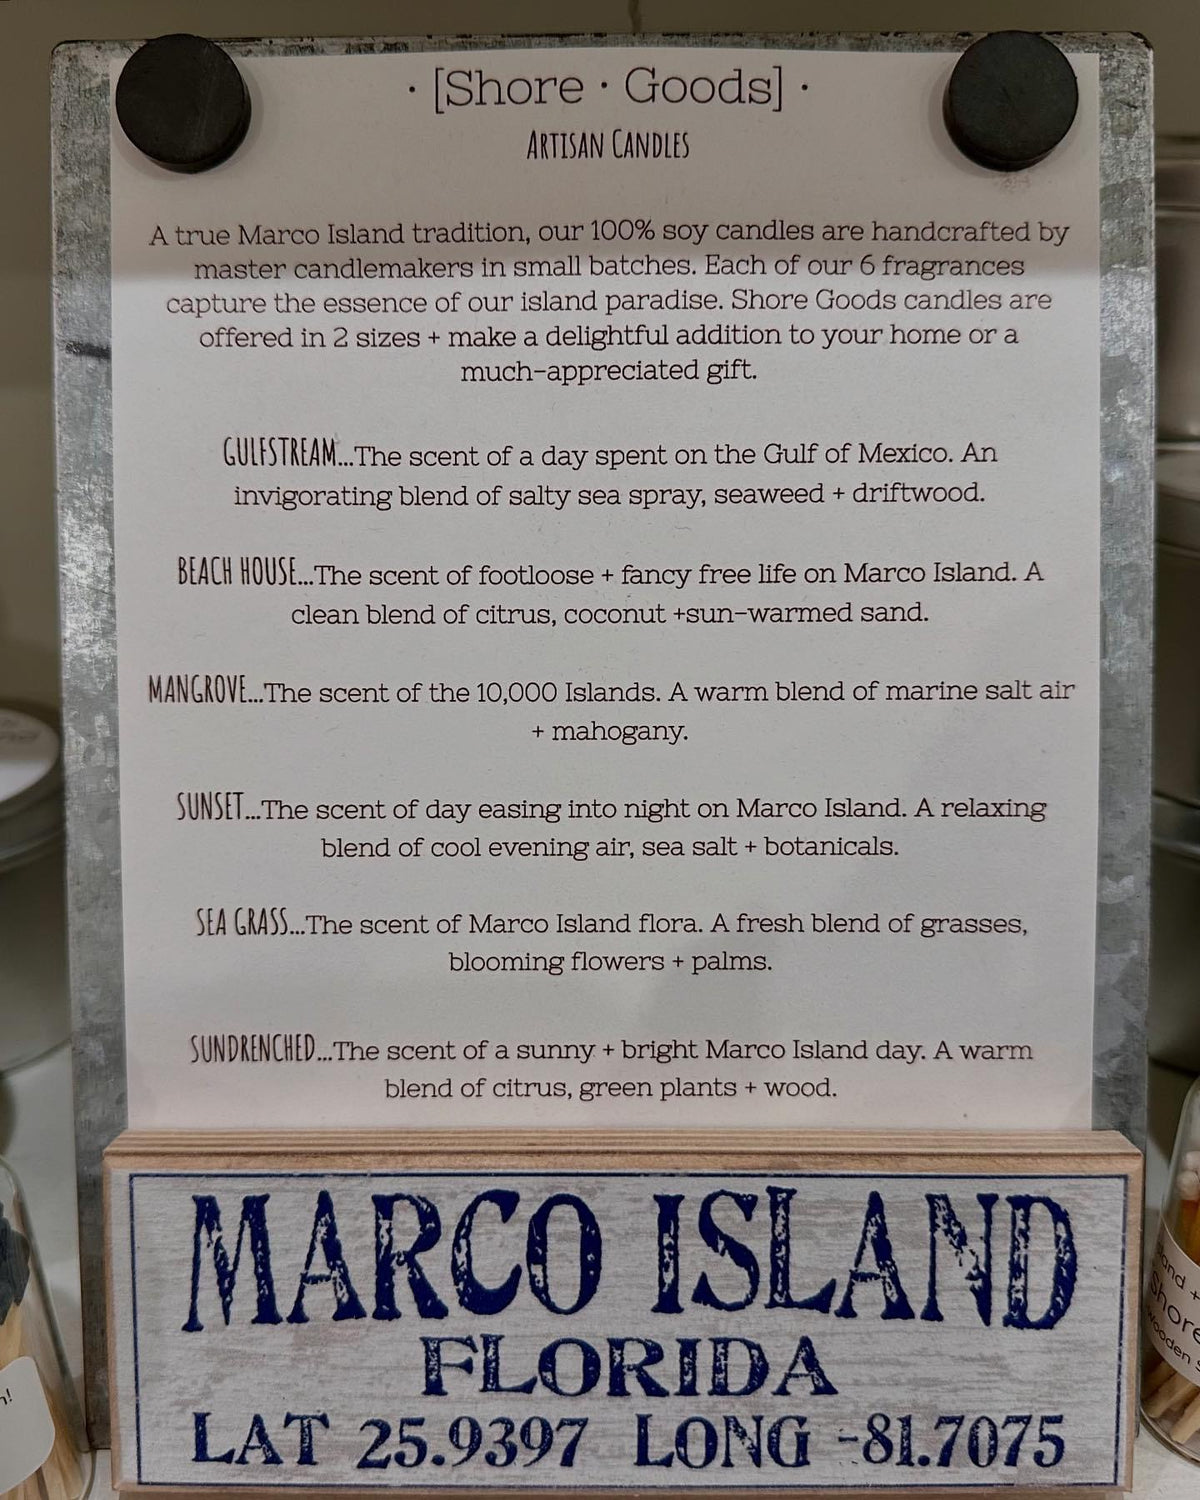 · [Shore · Goods] ·
ARTISAN CANDLES
A true Marco Island tradition, our 100% soy candles are handcrafted by
master candlemakers in small batches. Each of our 6 fragrances
capture the essence of our island paradise. Shore Goods candles are
offered in 2 sizes + make a delightful addition to your home or a
much-appreciated gift.
GULFSTREAM...The scent of a day spent on the Gulf of Mexico. An
invigorating blend of salty sea spray, seaweed + driftwood.
BEACH HOUSE...The scent of footloose + fancy free life on Marco Island. A
clean blend of citrus, coconut +sun-warmed sand.
MANGROVE...The scent of the 10,000 Islands. A warm blend of marine salt air
+ mahogany.
SUNSET...The scent of day easing into night on Marco Island. A relaxing
blend of cool evening air, sea salt + botanicals.
SEA GRASS...The scent of Marco Island flora. A fresh blend of grasses,
blooming flowers + palms.
SUNDRENCHED...The scent of a sunny + bright Marco Island day. A warm
blend of citrus, green plants + wood.
MARCO ISLAND
FLORIDA
LAT 25.9397 LONG -81.7075
Shore